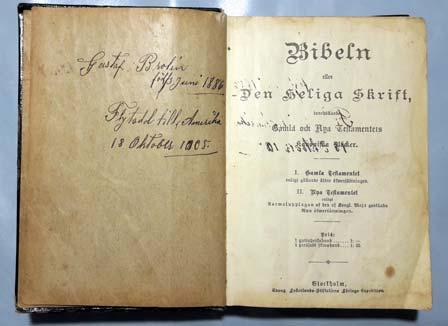 Gustaf Brolin
född Juni 1886
Flyttadt till Amerika
18 Oktober 1905.
Bibeln
eller
Den Heliga Skrift,
innehållande
Gamla och Nya Testamentets
Kanoniska Böcker.
I. Gamla Testamentet
enligt gällande äldre öfversättningen.
II. Nya Testamentet
enligt
Normalupplagan af den af Kongl. Maj:t gillade
Nya öfversättningen.
Pris:
Stockholm,
Evang. Fosterlands-Stiftelsens Förlags-Expedition.